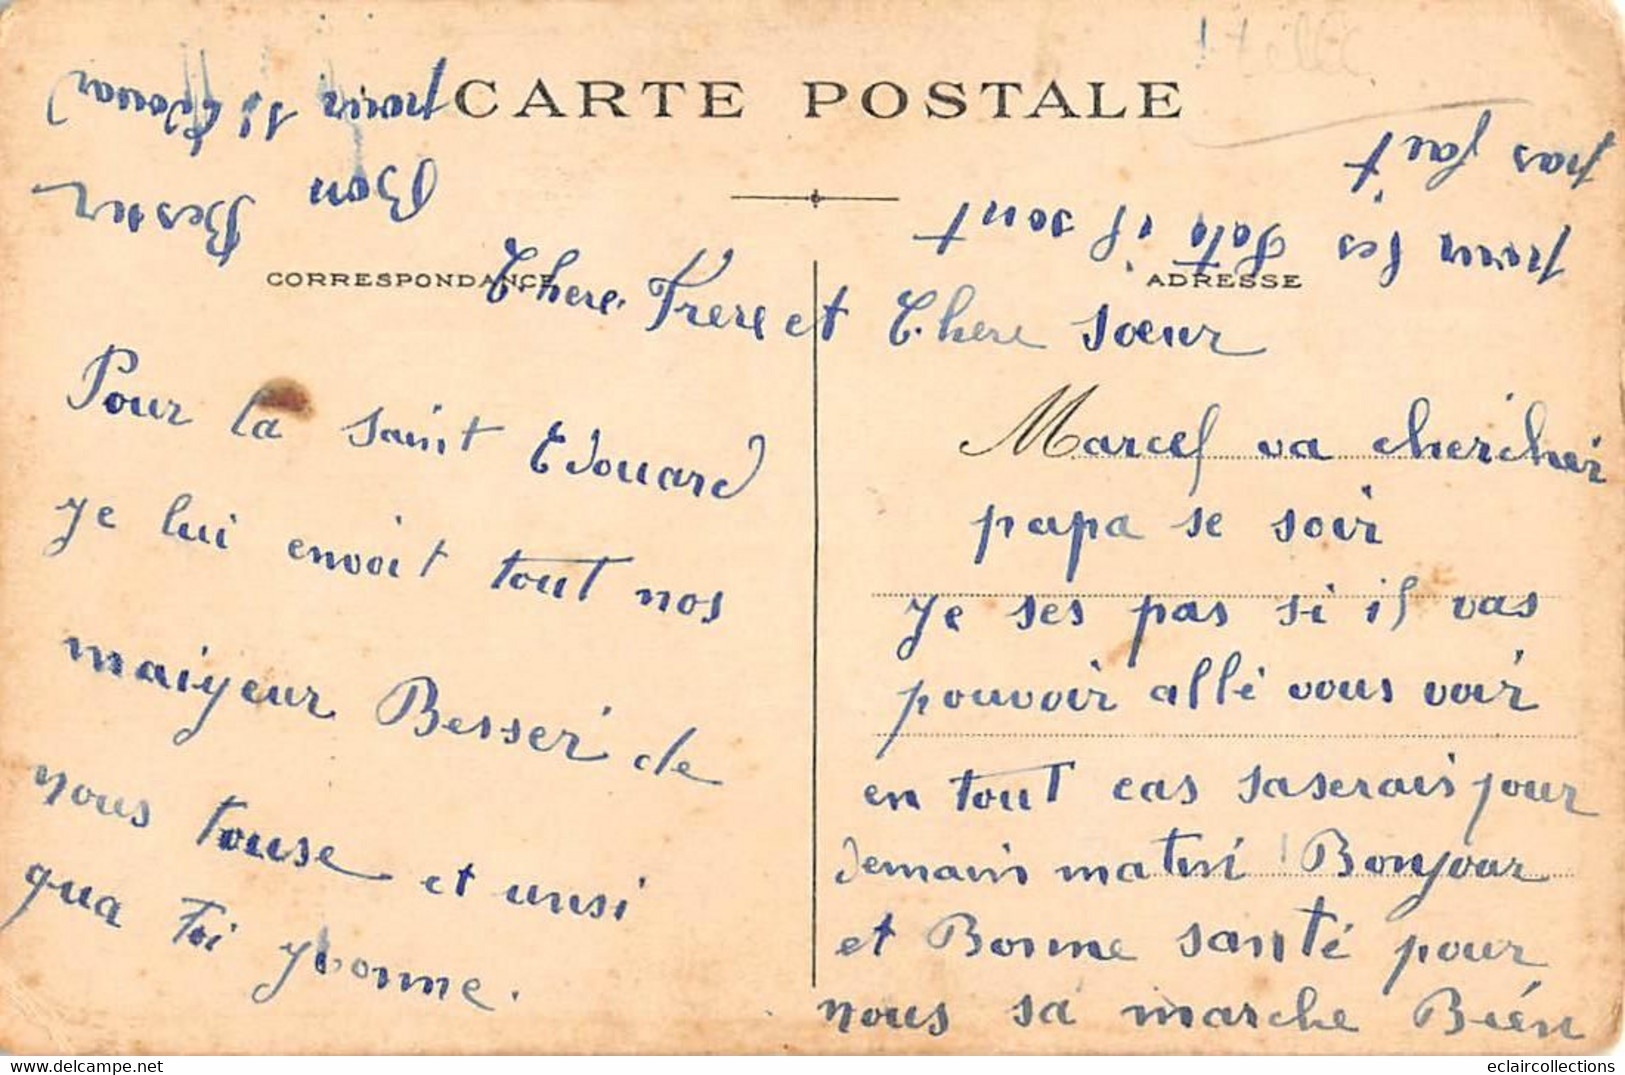 CARTE POSTALE
CORRESPONDANCE
ADRESSE
Chere Frere et Chere sœur
Pour la saint Edouard
je lui envoit tout nos
maiyeur Besser de
nous touse et unsi
qua toi yvonne.
Marcel va chercher
papa se soir
je ses pas si il vas
pouvoir allé vous voir
en tout cas saserais pour
demain matin Bonjour
et Bonne santé pour
nous sa marche Bien
pour les foto il sont
pas fait
Bon Besser
pour St Edouar
eclaircollections